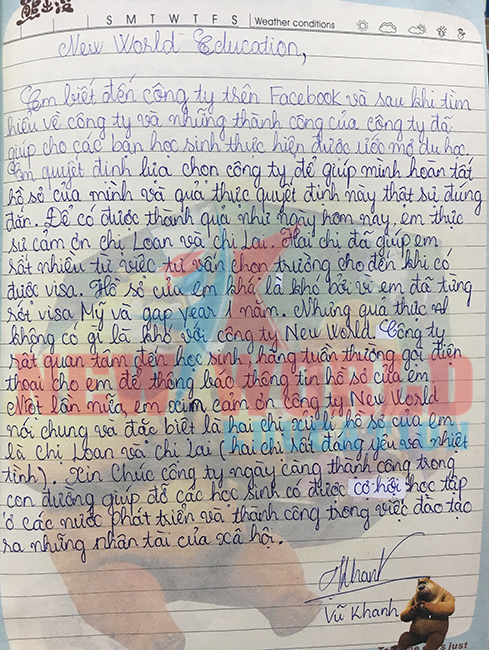 熊出没
S M T W T F S Weather conditions
New World Education,
Em biết đến công ty trên Facebook và sau khi tìm
hiểu về công ty và những thành công của công ty đã
giúp cho các bạn học sinh thực hiện được ước mơ du học.
Em quyết định lựa chọn công ty để giúp mình hoàn tất
hồ sơ của mình và quả thực quyết định này thật sự đúng
đắn. Để có được thành quả như ngày hôm nay, em thực
sự cảm ơn chị Loan và chị Lai. Hai chị đã giúp em
rất nhiều từ việc tư vấn chọn trường cho đến khi có
được visa. Hồ sơ của em khá là khó bởi vì em đã từng
rớt visa Mỹ và gap year 1 năm. Nhưng quả thực
không có gì là khó với công ty New World. Công ty
rất quan tâm đến học sinh, hằng tuần thường gọi điện
thoại cho em để thông báo thông tin hồ sơ của em.
Một lần nữa, em xin cảm ơn công ty New World
nói chung và đặc biệt là hai chị xử lí hồ sơ của em
là chị Loan và chị Lai (hai chị rất đáng yêu và nhiệt
tình). Xin Chúc công ty ngày càng thành công trong
con đường giúp đỡ các học sinh có được cơ hội học tập
ở các nước phát triển và thành công trong việc đào tạo
ra những nhân tài của xã hội.
Khanh
Vũ Khanh
NEW WORLD
EDUCATION
just